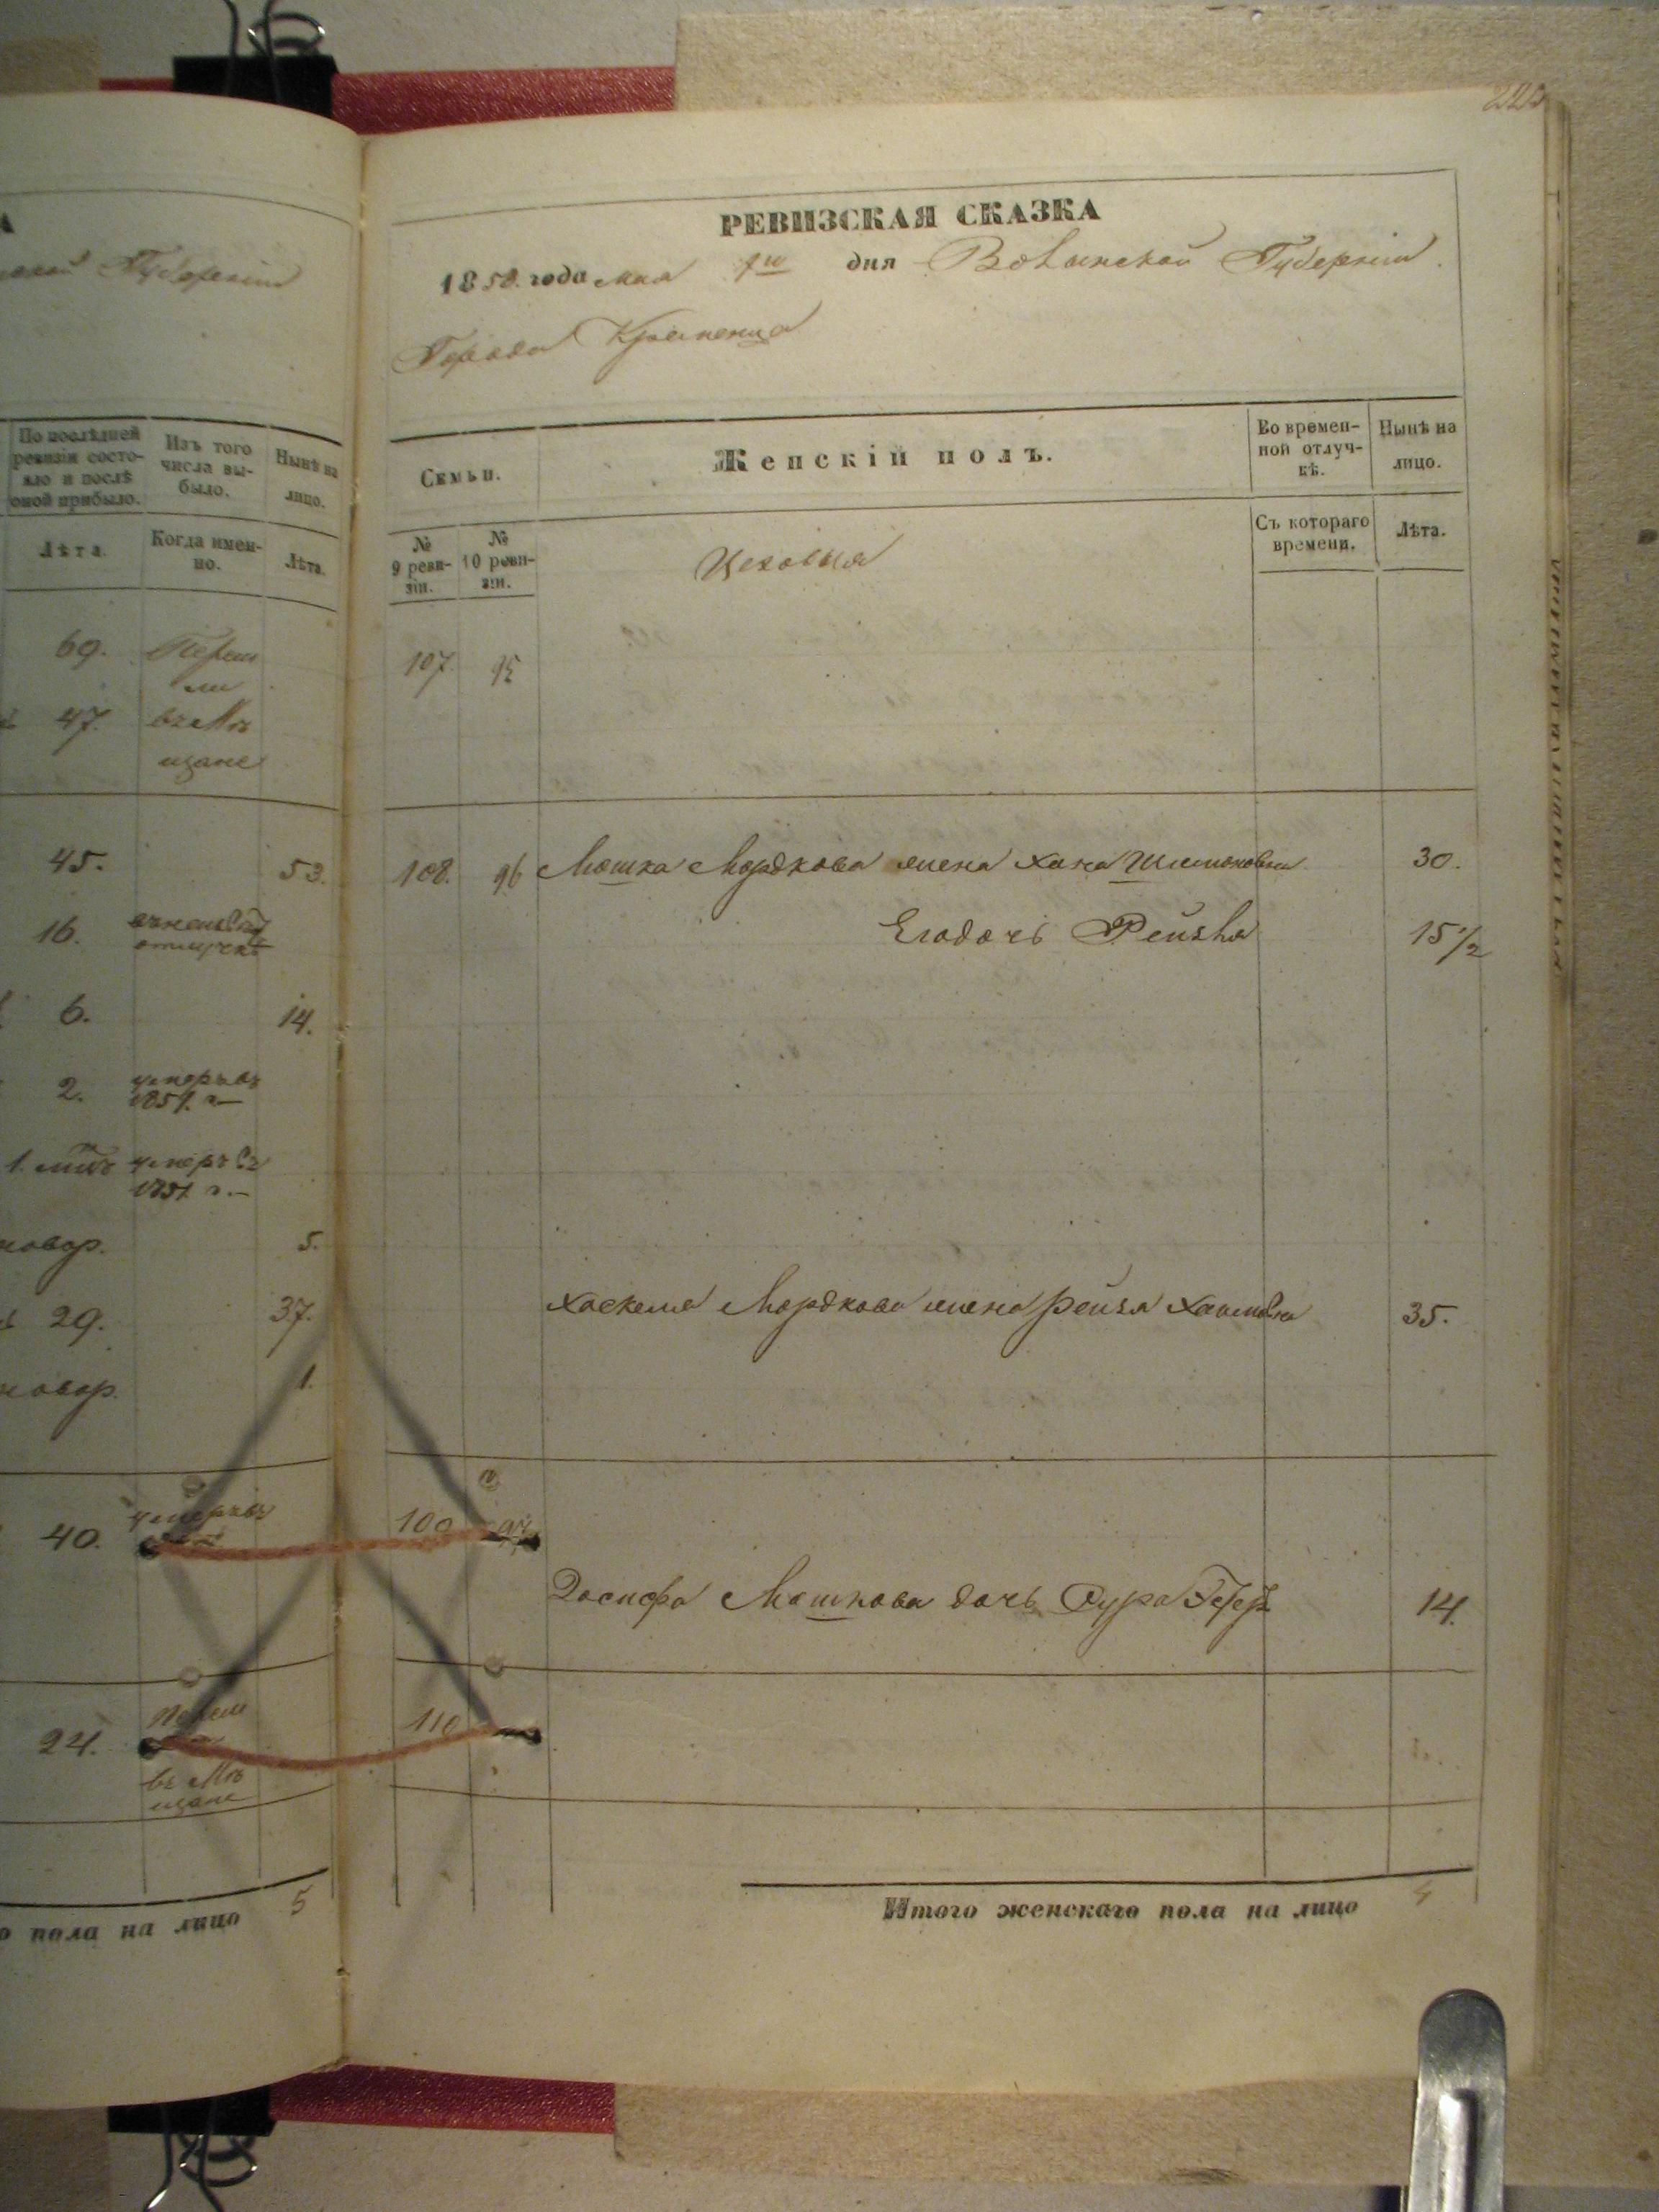 А
Губерніи
По послѣдней ревизіи состояло и послѣ оной прибыло.
Изъ того числа выбыло.
Нынѣ на лицо.
Лѣта.
Когда именно.
Лѣта.
69. Переш
ли
47. въ Мѣ
щане
45. 53.
16.
отлучкѣ
6. 14.
2. умеръ въ
1851. г.
1. умеръ въ
1851 г.
новор. 5.
29. 37.
новор. 1.
40. умеръ въ
24. Переш
въ Мѣ
щане
пола на лицо 5
РЕВИЗСКАЯ СКАЗКА
1858. года мая дня Волынской Губерніи
Города Кременца
Семьи.
Женскій полъ.
Во времен-
ной отлуч-
кѣ.
Нынѣ на
лицо.
№
9 реви-
зіи.
№
10 реви-
зіи.
Съ котораго
времени.
Лѣта.
Цеховыя
107. 95
108. 96 Мошка Мордкова жена Хана Шимоновна 30.
Его дочь Рейзля 15 1/2
Хаскеля Мордкова жена Рейзя Хаимовна 35.
109 97
Іосифа Мошкова дочь Сура 14.
110
Итого женскаго пола на лицо 4